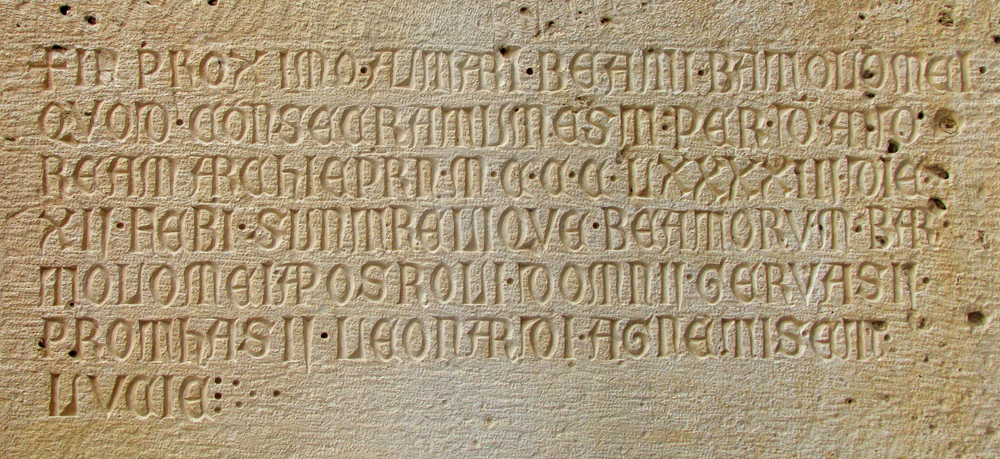 +IN PROXIMO ALTARI·BEATI·BATOLOMEI
QVOD·CONSECRATUM·EST·PER·D·AND
REAM ARCHIEPRN·M·C·C·C·LXXXXIII·DIE·
XII·FEBI·SUNT RELIQVE·BEATORVM·BAR
TOLOMEI APOSTOLI·DOMNII·GERVASII·
PROTHASII·LEONARDI·AGNETIS·ET·
LVCIE